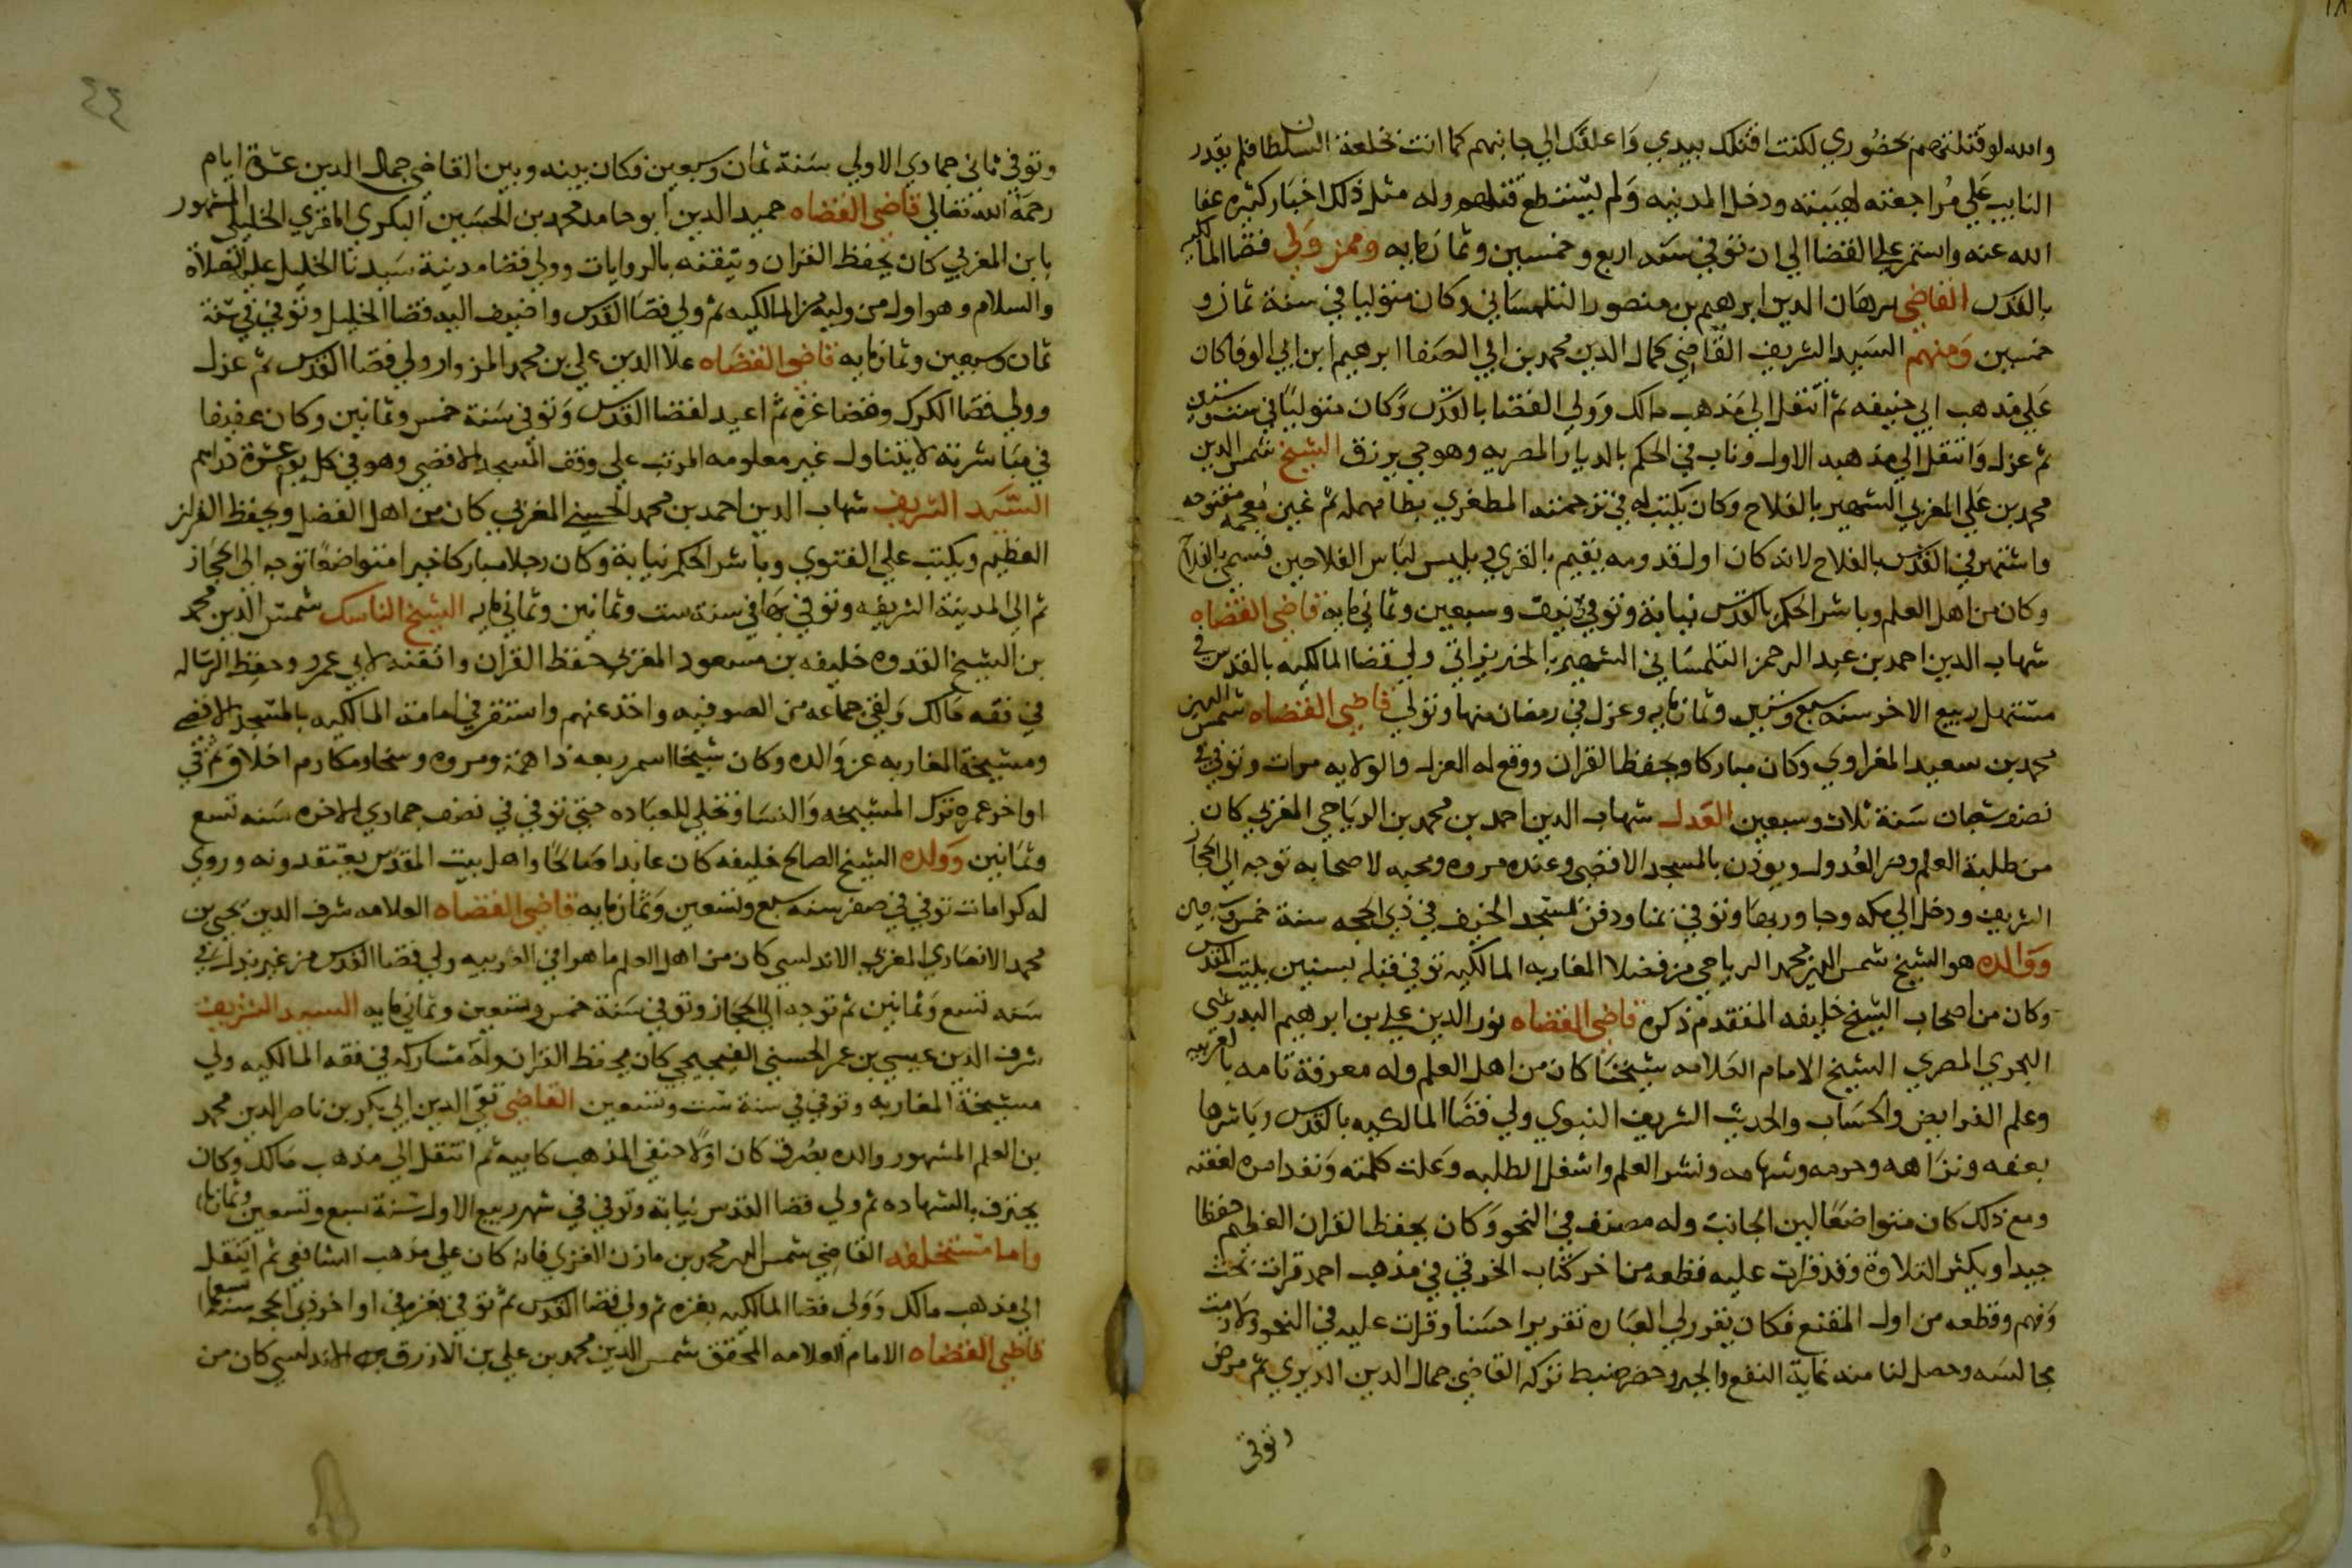 والله لو قتلتهم بحضوري لكنت اقتلك بيدي واعلقك الي جانبهم كما انت بخلعة السلطان فلم يقدر
النايب علي مراجعته لهيبته ودخل المدينه ولم يستطع قتلهم وله مثل ذلك اخبار كثيره عفا
الله عنه واستمر علي القضا الي ان توفي سنه اربع وخمسين وثمانمايه وممن ولي قضا المالكيه
بالقدس القاضي برهان الدين ابرهيم بن منصور التلمساني وكان متوليا في سنة ثمان و
خمسين ومنهم السيد الشريف القاضي كمال الدين محمد بن ابي الصفا ابرهيم ابن ابي الوفا كان
علي مذهب ابي حنيفه ثم انتقل الي مذهب مالك وولي القضا بالقدس وكان متوليا في سنة ستين
ثم عزل وانتقل الي مذهبه الاول وناب في الحكم بالديار المصريه وهو حي يرزق الشيخ شمس الدين
محمد بن علي المغربي الشهير بالفلاح وكان يكتب له في ترجمته المطغري بطا مهمله ثم غين معجمه مفتوحه
واشتهر في القدس بالفلاح لانه كان اول قدومه يقيم بالقري ويلبس لباس الفلاحين فسمي بالفلاح
وكان من اهل العلم وباشر الحكم بالقدس نيابة وتوفي في نيف وسبعين وثماني مايه قاضي القضاه
شهاب الدين احمد بن عبد الرحمن التلمساني الشهير بالخيرزاتي ولي قضا المالكيه بالقدس في
مستهل ربيع الاخر سنه سبع وستين وثمانمايه وعزل في رمضان منها وتولي قاضي القضاه شمس الدين
محمد بن سعيد المغراوي وكان مباركا ويحفظ القران ووقع له العزل والولايه مرات وتوفي في
نصف شعبان سنة ثلاث وسبعين العدل شهاب الدين احمد بن محمد بن الرياحي المغربي كان
من طلبة العلم ومن العدول ويوذن بالمسجد الاقصي وعنده مروه ومحبه لاصحابه توجه الي الحجاز
الشريف ودخل الي مكه وجاور بها وتوفي بمنا ودفن بمسجد الخيف في ذي الحجه سنة خمس وثمانين
ووالده هو الشيخ شمس الدين محمد الرياحي من فضلا المغاربه المالكيه توفي قبله بسنين ببيت المقدس
وكان من اصحاب الشيخ خليفه المتقدم ذكره قاضي القضاه نور الدين علي بن ابرهيم البدرشي
البحري المصري الشيخ الامام العلامه شيخنا كان من اهل العلم وله معرفة تامه بالعربيه
وعلم الفرايض والحساب والحديث الشريف النبوي ولي قضا المالكيه بالقدس وباشرها
بعفه ونزاهه وحرمه وشهامه ونشر العلم واشغل الطلبه وعلت كلمته ونفذ امره لعفته
ومع ذلك كان متواضعا لين الجانب وله مصنف في النحو وكان يحفظ القران العظيم حفظا
جيدا ويكثر التلاوة وقد قرات عليه قطعه من اخر كتاب الخرقي في مذهب احمد قراة بحث
وفهم وقطعه من اول المقنع فكان يقرر لي العباره تقريرا حسنا وقرات عليه في النحو ولازمت
مجالسه وحصل لنا منه غاية النفع والخير وحضر ضبط تركه القاضي جمال الدين الديري ثم مرض
وتوفي
٤٤
وتوفي ثاني جمادي الاولي سنة ثمان وسبعين وكان بينه وبين القاضي جمال الدين عشرة ايام
رحمة الله تعالي قاضي القضاه حميد الدين ابو حامد محمد بن الحسين البكري المقري الخليلي المشهور
بابن المغربي كان يحفظ القران ويتقنه بالروايات وولي قضا مدينة سيدنا الخليل عليه الصلاة
والسلام وهو اول من وليه من المالكيه ثم ولي قضا القدس واضيف اليه قضا الخليل وتوفي في سنة
ثمان وسبعين وثمانمايه قاضي القضاه علا الدين علي بن محمد المزوار ولي قضا القدس ثم عزل
وولي قضا الكرك وقضا غزه ثم اعيد لقضا القدس وتوفي سنة خمس وثمانين وكان عفيفا
في مباشرته لا يتناول غير معلومه المرتب علي وقف المسجد الاقصي وهو في كل يوم عشرة دراهم
السيد الشريف شهاب الدين احمد بن محمد الحسيني المغربي كان من اهل الفضل ويحفظ القران
العظيم ويكتب علي الفتوي وباشر الحكم نيابة وكان رجلا مباركا خيرا متواضعا توجه الي الحجاز
ثم الي المدينة الشريفه وتوفي بها في سنة ست وثمانين وثماني مايه الشيخ الناسك شمس الدين محمد
بن الشيخ القدوه خليفه بن مسعود المغربي حفظ القران واتقنه لابي عمرو وحفظ الرساله
في فقه مالك ولقي جماعه من الصوفيه واخذ عنهم واستقر في امامة المالكيه بالمسجد الاقصي
ومشيخة المغاربه عن والده وكان شيخا اسمر ربعه ذا همة ومروه وسخا ومكارم اخلاق ثم في
اواخر عمره ترك المشيخه والنسا وتخلي للعباده حتي توفي في نصف جمادي الاخره سنه تسع
وثمانين وولده الشيخ الصالح خليفه كان عابدا صالحا واهل بيت المقدس يعتقدونه وروي
له كرامات توفي في صفر سنه سبع وتسعين وثمانمايه قاضي القضاه العلامه شرف الدين يحيي بن
محمد الانصاري المغربي الاندلسي كان من اهل العلم ماهرا في العربيه ولي قضا القدس من غير بذل في
سنه تسع وثمانين ثم توجه الي الحجاز وتوفي سنة خمس وتسعين وثماني مايه السيد الشريف
شرف الدين عيسي بن عمر الحسني الفجيجي كان يحفظ القران وله مشاركه في فقه المالكيه ولي
مشيخة المغاربه وتوفي في سنة ست وتسعين القاضي تقي الدين ابي بكر بن ناصر الدين محمد
بن العلم المشهور والده بصرف كان اولا حنفي المذهب كابيه ثم انتقل الي مذهب مالك وكان
يحترف بالشهاده ثم ولي قضا القدس نيابة وتوفي في شهر ربيع الاول سنة سبع وتسعين وثمانمايه
واما مستخلفه القاضي شمس الدين محمد بن مازن الغزي فانه كان علي مذهب الشافعي ثم انتقل
الي مذهب مالك وولي قضا المالكيه بغزه ثم ولي قضا القدس ثم توفي بغزه في اواخر ذي الحجه سنة
قاضي القضاه الامام العلامه المحقق شمس الدين محمد بن علي بن الازرق الاندلسي كان من